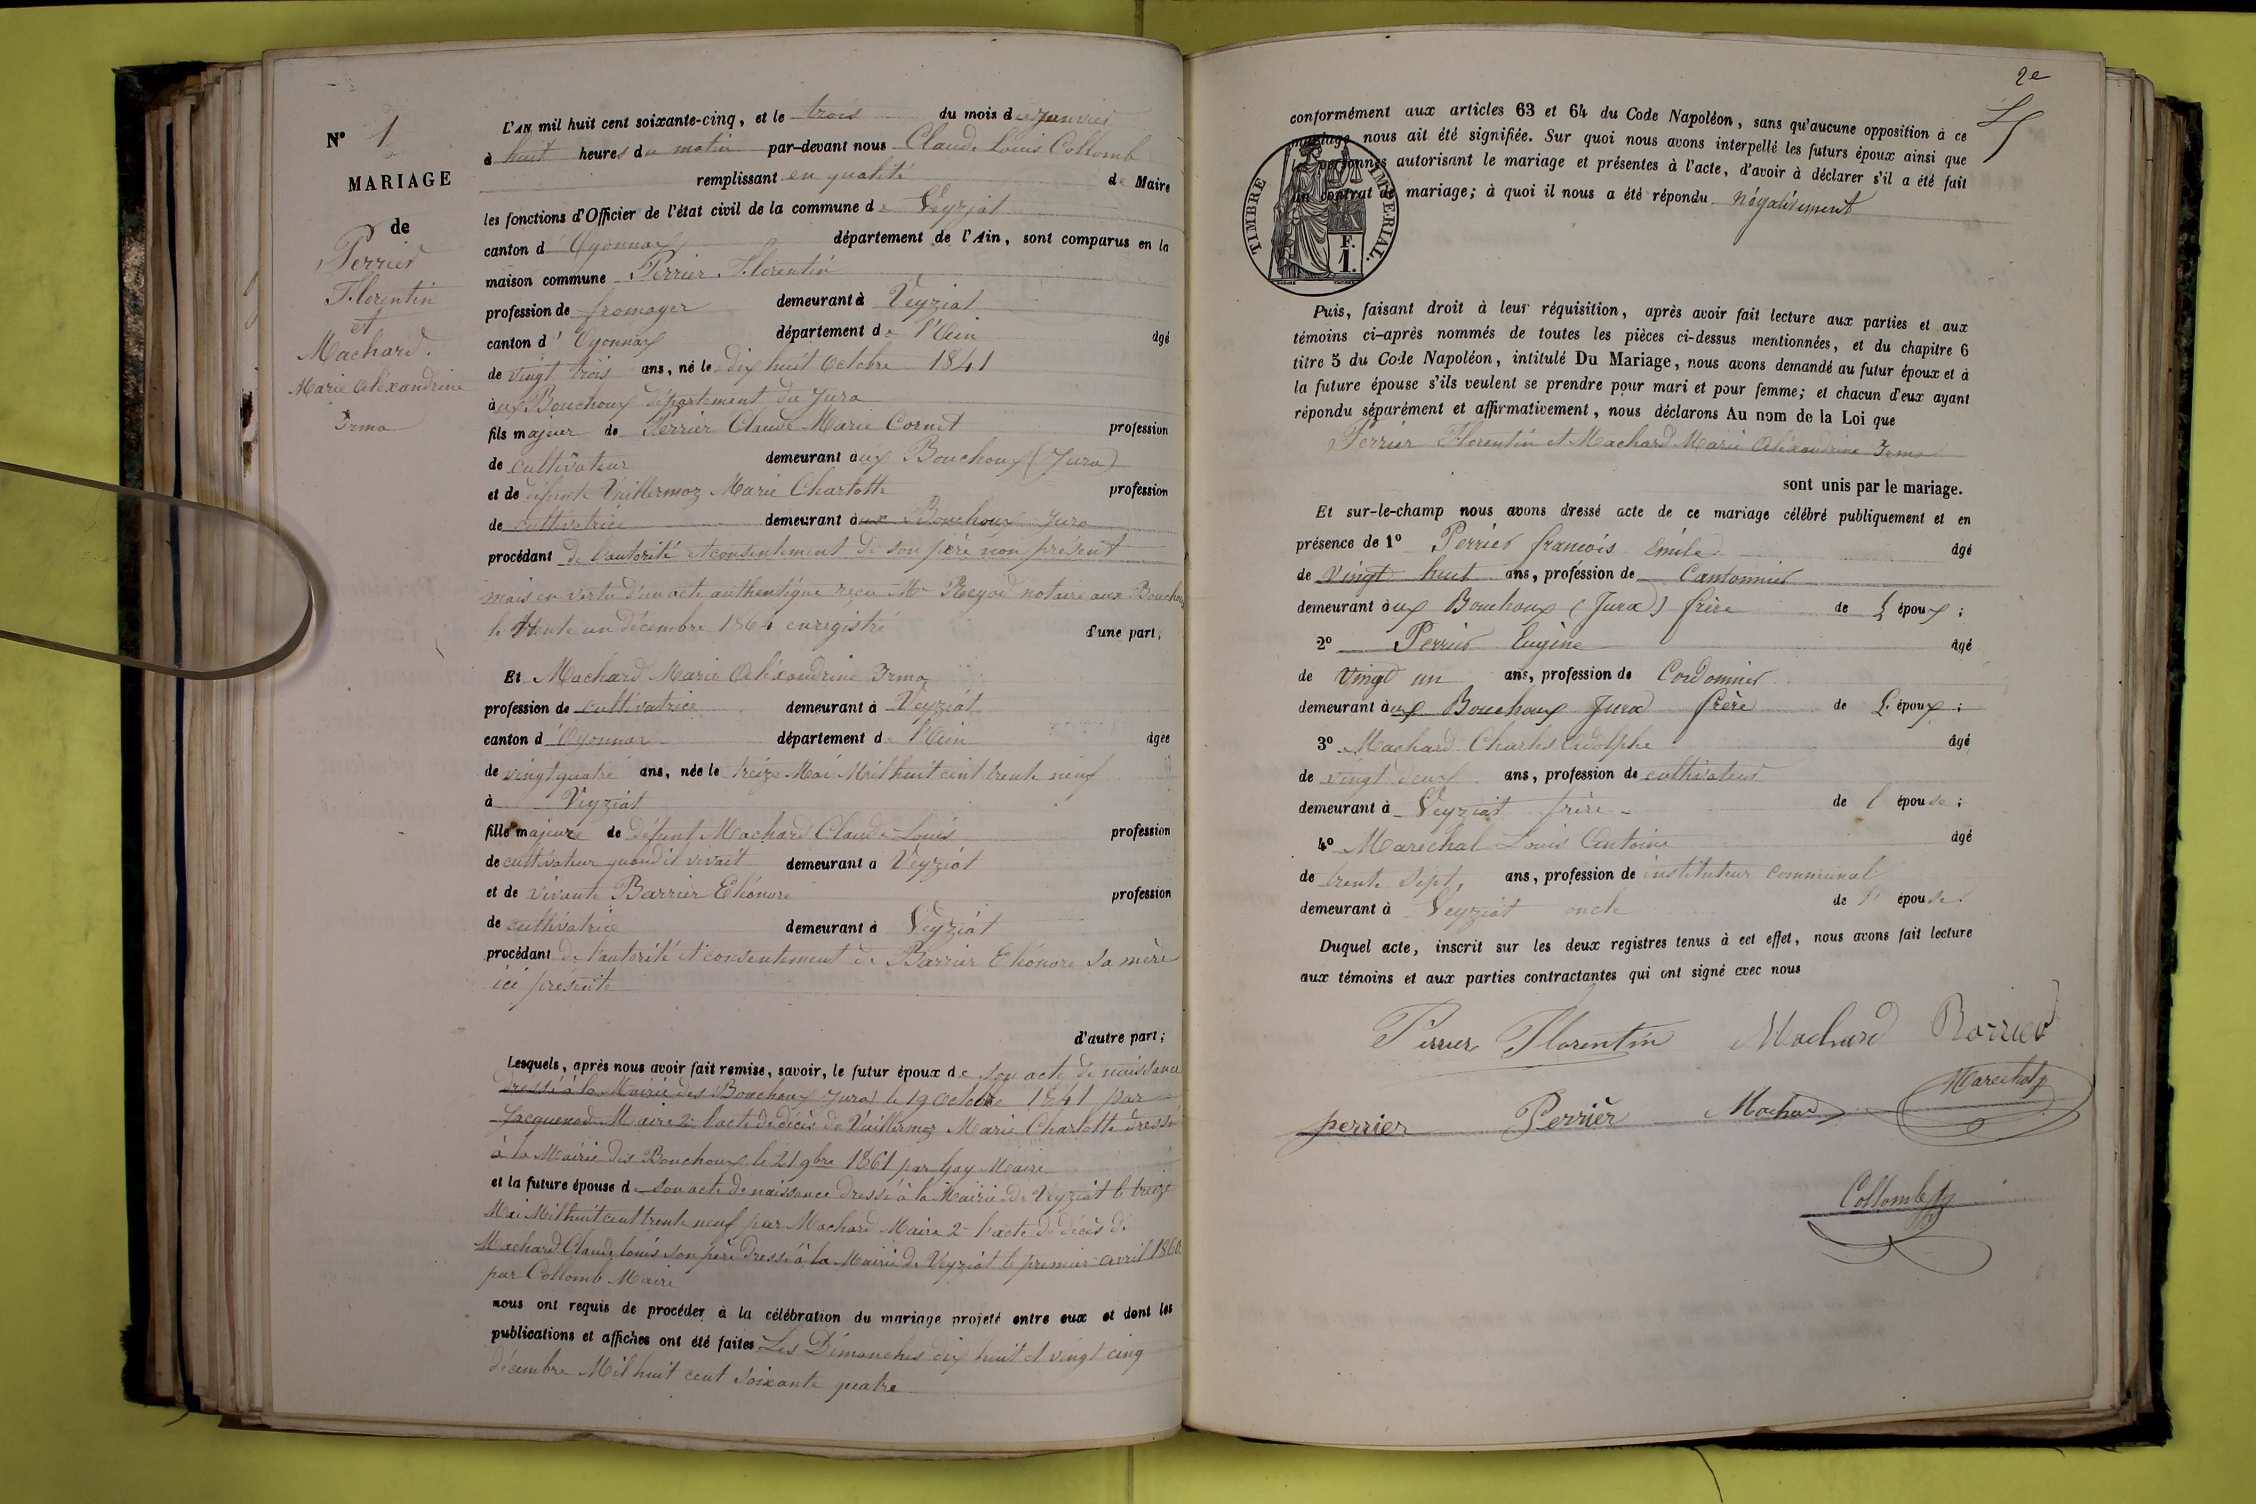 N° 1
MARIAGE
de
Perrier
Florentin
et
Machard
Marie Aléxandrine
Irma
L'AN mil huit cent soixante-cinq, et le trois du mois de janvier
à huit heures du matin par-devant nous Claude Louis Collomb
remplissant en qualité de Maire
les fonctions d'Officier de l'état civil de la commune de Veyziat
canton d'Oyonnax département de l'Ain, sont comparus en la
maison commune Perrier Florentin
profession de fromager demeurant à Veyziat
canton d'Oyonnax département de l'Ain âgé
de vingt trois ans, né le dix huit Octobre 1841
aux Bouchoux département du Jura
fils majeur de Perrier Claude Marie Cornet profession
de cultivateur demeurant aux Bouchoux (Jura)
et de défunte Vuillermoz Marie Charlotte profession
de cultivatrice demeurant aux Bouchoux Jura
procédant de l'autorité et consentement de son père non présent
mais en vertu d'un acte authentique reçu Mr notaire aux Bouchoux
le trente un décembre 1864 enregistré d'une part,
Et Machard Marie Aléxandrine Irma
profession de cultivatrice demeurant à Veyziat
canton d'Oyonnax département de l'Ain âgée
de vingt quatre ans, née le treize Mai Mil huit cent trente neuf
à Veyziat
fille majeure de défunt Machard Claude Louis profession
de cultivateur quand il vivait demeurant à Veyziat
et de vivante Barrier Eléonore profession
de cultivatrice demeurant à Veyziat
procédant de l'autorité et consentement de Barrier Eléonore sa mère
ici présente
d'autre part;
Lesquels, après nous avoir fait remise, savoir, le futur époux de son acte de naissance
dressé à la Mairie des Bouchoux Jura le 19 Octobre 1841 par
Jacquenod Maire 2° l'acte de décès de Vuillermoz Marie Charlotte dressé
à la Mairie des Bouchoux le 21 9bre 1861 par Gay Maire
et la future épouse de son acte de naissance dressé à la Mairie de Veyziat le treize
Mai Mil huit cent trente neuf par Machard Maire 2° l'acte de décès de
Machard Claude Louis son père dressé à la Mairie de Veyziat le premier avril 1860
par Collomb Maire
nous ont requis de procéder à la célébration du mariage projeté entre eux et dont les
publications et affiches ont été faites Les Dimanches dix huit et vingt cinq
décembre Mil huit cent soixante quatre
2e
conformément aux articles 63 et 64 du Code Napoléon, sans qu'aucune opposition à ce
mariage nous ait été signifiée. Sur quoi nous avons interpellé les futurs époux ainsi que
personnes autorisant le mariage et présentes à l'acte, d'avoir à déclarer s'il a été fait
un contrat de mariage; à quoi il nous a été répondu négativement
TIMBRE IMPERIAL.
F.
1.
Puis, faisant droit à leur réquisition, après avoir fait lecture aux parties et aux
témoins ci-après nommés de toutes les pièces ci-dessus mentionnées, et du chapitre 6
titre 5 du Code Napoléon, intitulé Du Mariage, nous avons demandé au futur époux et à
la future épouse s'ils veulent se prendre pour mari et pour femme; et chacun d'eux ayant
répondu séparément et affirmativement, nous déclarons Au nom de la Loi que
Perrier Florentin et Machard Marie Aléxandrine Irma
sont unis par le mariage.
Et sur-le-champ nous avons dressé acte de ce mariage célébré publiquement et en
présence de 1° Perrier francois Emile âgé
de vingt huit ans, profession de Cantonnier
demeurant aux Bouchoux (Jura) frère de L'époux;
2° Perrier Eugène âgé
de vingt un ans, profession de Cordonnier
demeurant aux Bouchoux Jura frère de L'époux;
3° Machard Charles Adolphe âgé
de vingt deux ans, profession de cultivateur
demeurant à Veyziat frère de l'épouse;
4° Marechal Louis Antoine âgé
de trente sept, ans, profession de instituteur communal
demeurant à Veyziat oncle de l'épouse.
Duquel acte, inscrit sur les deux registres tenus à cet effet, nous avons fait lecture
aux témoins et aux parties contractantes qui ont signé avec nous
Perrier Florentin Machard Barrier
Marechal
perrier Perrier Machard
Collomb